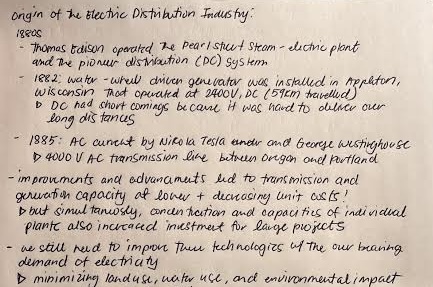 Origin of the Electric Distribution Industry:
1880s
- Thomas Edison operated the Pearl street Steam-electric plant
and the pioneer distribution (DC) system
- 1882: water-wheel driven generator was installed in Appleton,
Wisconsin that operated at 2400V, DC (59km travelled)
▷ DC had short comings because it was hard to deliver over
long distances
- 1885: AC current by Nikola Tesla and George Westinghouse
▷ 4000 V AC transmission line between Oregon and Portland
- improvements and advancements led to transmission and
generation capacity at lower + decreasing unit costs!
▷ but simultaneously, concentration and capacities of individual
plants also increased investment for large projects
- we still need to improve these technologies w/ the our
demand of electricity
▷ minimizing land use, water use, and environmental impact